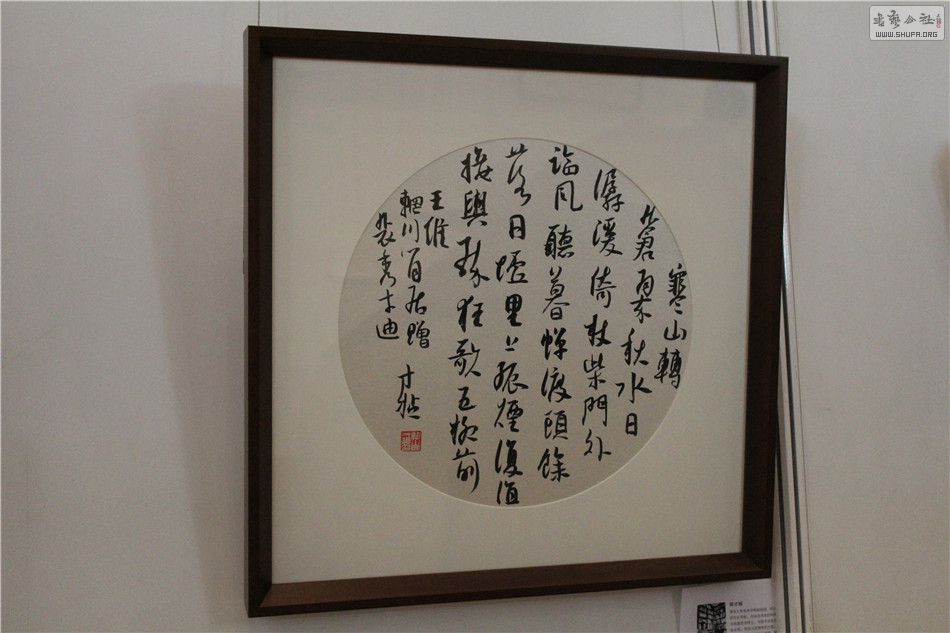 寒山轉
蒼翠秋水日
潺湲倚杖柴門外
臨風聽暮蟬渡頭餘
落日墟里上孤煙復值
接輿醉狂歌五柳前
王維
輞川閑居贈
裴秀才迪
書藝公社
WWW.SHUFA.ORG